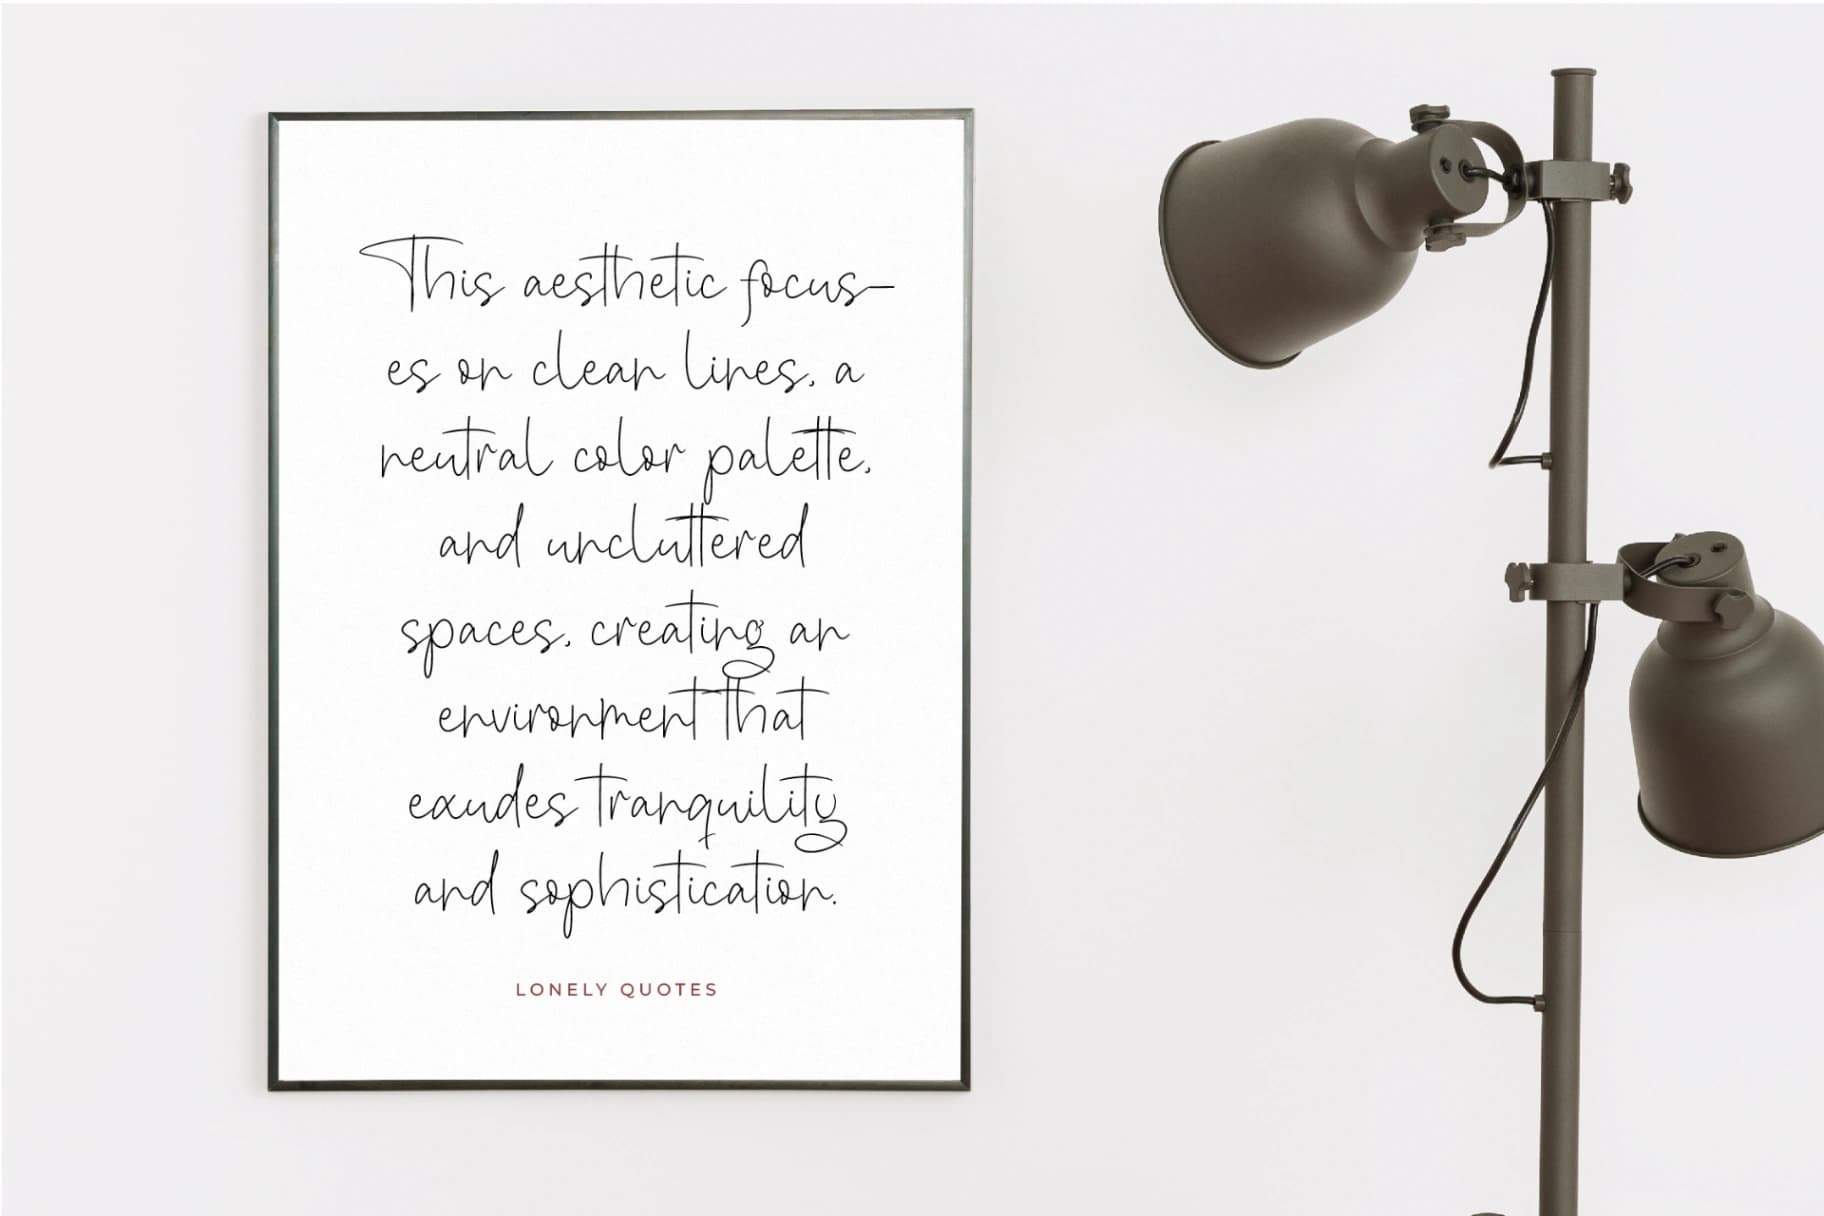 This aesthetic focus-
es on clean lines, a
neutral color palette,
and uncluttered
spaces, creating an
environment that
exudes tranquility
and sophistication.
LONELY QUOTES